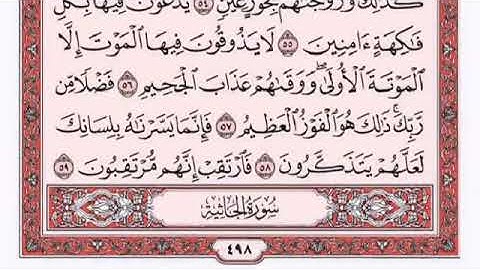 كَذَٰلِكَ وَزَوَّجْنَٰهُم بِحُورٍ عِينٍ ٥٤ يَدْعُونَ فِيهَا بِكُلِّ
فَٰكِهَةٍ ءَامِنِينَ ٥٥ لَا يَذُوقُونَ فِيهَا ٱلْمَوْتَ إِلَّا
ٱلْمَوْتَةَ ٱلْأُولَىٰ ۖ وَوَقَىٰهُمْ عَذَابَ ٱلْجَحِيمِ ٥٦ فَضْلًا مِّن
رَّبِّكَ ۚ ذَٰلِكَ هُوَ ٱلْفَوْزُ ٱلْعَظِيمُ ٥٧ فَإِنَّمَا يَسَّرْنَٰهُ بِلِسَانِكَ
لَعَلَّهُمْ يَتَذَكَّرُونَ ٥٨ فَٱرْتَقِبْ إِنَّهُم مُّرْتَقِبُونَ ٥٩
سُورَةُ الجَاثِيَةِ
٤٩٨